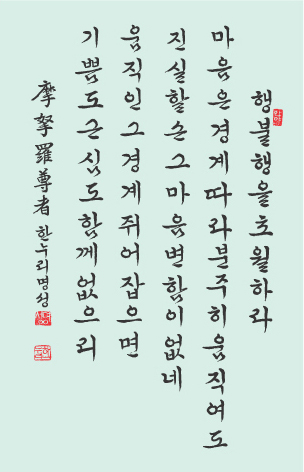 행불행을초월하라
마음은경계따라분주히움직여도
진실할손그마음변함이없네
움직인그경계쥐어잡으면
기쁨도근심도함께없으리
摩拏羅尊者 한누리명성